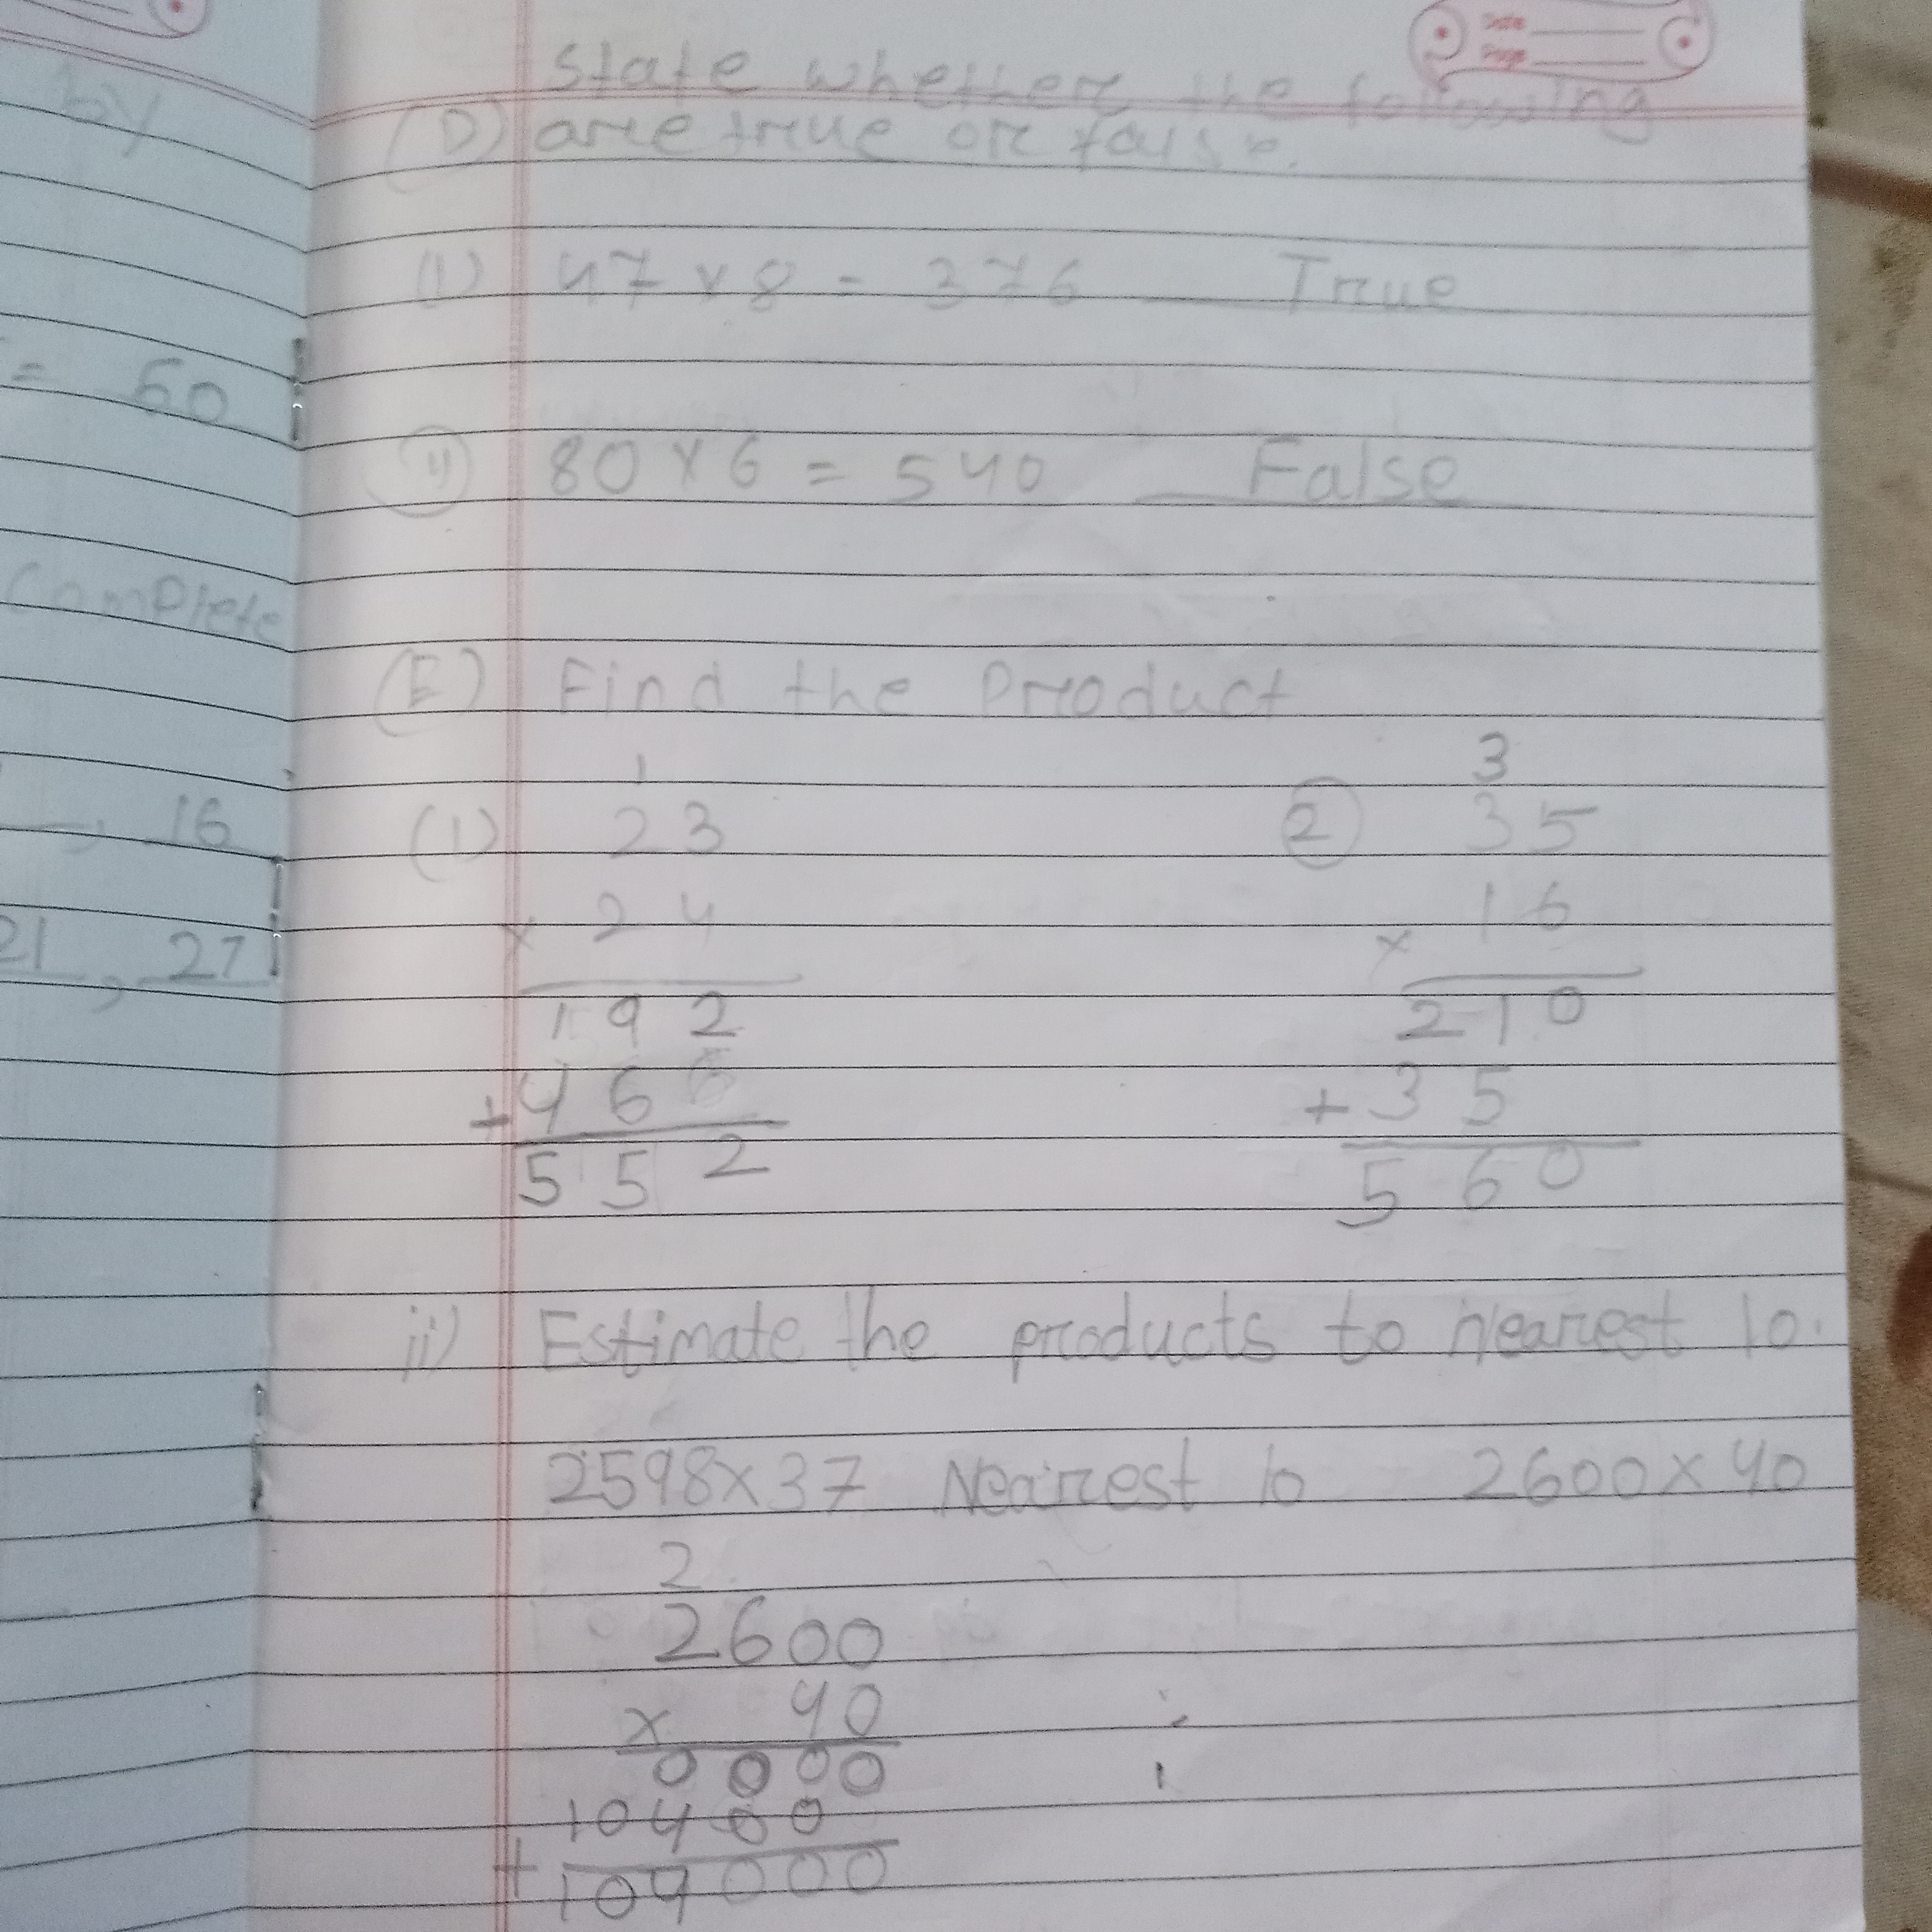 by
= 60
Complete
, 16
21, 27
Date
Page
State whether the following
(D) are true or false.
(1) 47 x 8 = 376 True
(ii) 80 x 6 = 540 False
(E) Find the Product
1
(1) 23
x 24
192
+ 46
552
3
(2) 35
x 16
210
+ 35
560
ii) Estimate the products to nearest 10.
2598 x 37 Nearest 10 2600 x 40
2
2600
x 40
0000
10400
+
104000